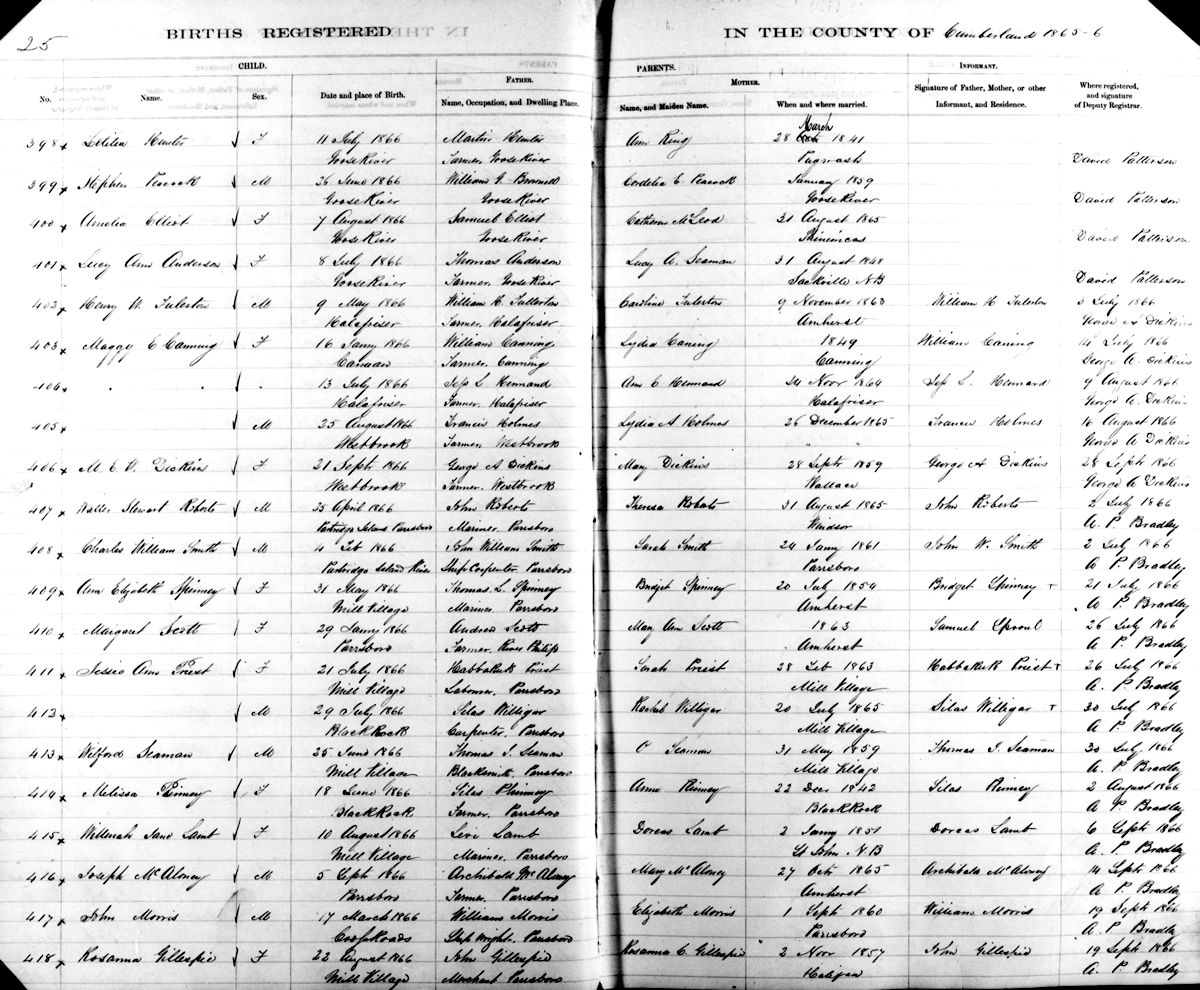 25
BIRTHS REGISTERED IN THE COUNTY OF Cumberland 1865-6
CHILD. PARENTS. INFORMANT.
No. Name. Sex. Date and place of Birth. FATHER. Name, Occupation, and Dwelling Place. MOTHER. Name, and Maiden Name. When and where married. Signature of Father, Mother, or other Informant, and Residence. Where registered, and signature of Deputy Registrar.
March
398 x Letitia Hunter F 11 July 1866 Martin Hunter Ann King 28 1841
Goose River Farmer Goose River Pugwash David Patterson
399 x Stephen Peacock M 26 June 1866 William Cordelia E. Peacock January 1859
Goose River Goose River Goose River David Patterson
400 x Amelia Elliot F 7 August 1866 Samuel Elliot Catherine McLeod 31 August 1865
Goose River Goose River David Patterson
401 x Lucy Ann Anderson F 8 July 1866 Thomas Anderson Lucy A. Seaman 31 August 1848
Goose River Farmer, Goose River Sackville N.B David Patterson
402 x Henry W. Fulerton M 9 May 1866 William H. Fullerton Caroline Fulerton 9 November 1863 William H Fulerton 3 July 1866
Halafriser Farmer, Halafriser Amherst George A Dickins
403 x Maggy E Canning F 16 Janny 1866 William Canning Lydia Caning 1849 William Caning 14 July 1866
Canaan Farmer, Canning Canning George A. Dickins
404 x . . . 13 July 1866 Jess L Hennard Ann E Hennard 24 Novr 1864 Jess L. Hennard 9 August 1866
Halafriser Farmer, Halafriser Halafriser George A. Dickins
405 x M 25 August 1866 Francis Holmes Lydia A Holmes 26 December 1865 Francis Holmes 16 August 1866
Westbrook Farmer, Westbrook " " George A Dickins
406 x M. E. W. Dickins F 21 Septr 1866 George A Dickins Mary Dickins 28 Septr 1859 George A Dickins 28 Septr 1866
Westbrook Farmer, Westbrook Wallace George A. Dickins
407 x Walter Stewart Roberts M 25 April 1866 John Roberts Theresa Robats 31 August 1865 John Roberts 2 July 1866
Partridge Island Parrsboro Mariner Parrsboro Windsor A. P. Bradley
408 x Charles William Smith M 4 Feb 1866 John William Smith Sarah Smith 24 Janny 1861 John W. Smith 2 July 1866
Partridge Island River Ship Carpenter, Parrsboro Parrsboro A. P. Bradley
409 x Ann Elizabeth Spinney F 31 May 1866 Thomas L. Spinney Bridget Spinney 20 July 1854 Bridget Spinney + 21 July 1866
Mill Village Mariner, Parrsboro Amherst A P. Bradley
410 x Margaret Scott F 29 Janny 1866 Andrew Scott Mary Ann Scott 1863 Samuel Sproul 26 July 1866
Parrsboro Farmer, River Philip Amherst A P. Bradley
411 x Jessie Ann Priest F 21 July 1866 Habbakuk Priest Sarah Priest 28 Feb 1863 Habbakuk Priest + 26 July 1866
Mill Village Laborer, Parrsboro Mill Village A. P. Bradley
413 x M 29 July 1866 Silas Willigar Rachel Willigar 20 July 1865 Silas Willigar + 30 July 1866
Black Rock Carpenter, Parrsboro Mill Village A P. Bradley
413 x Wilford Seaman M 25 June 1866 Thomas I. Seaman O Seaman 31 May 1859 Thomas I. Seaman 30 July 1866
Mill Village Blacksmith, Parrsboro Mill Village A. P. Bradley
414 x Melissa Pinney F 18 June 1866 Silas Phinney Anna Pinney 22 Decr 1842 Silas Pinney 2 August 1866
Black Rock Farmer, Parrsboro Black Rock A P. Bradley
415 x Jane Lamb F 10 August 1866 Levi Lamb Dorcas Lamb 2 Janny 1851 Dorcas Lamb 6 Septr 1866
Mill Village Mariner, Parrsboro St John N.B A. P. Bradley
416 x Joseph McAloney M 5 Sept 1866 Archibald McAloney Mary McAloney 27 Octr 1865 Archibald McAloney 14 Septr 1866
Parrsboro Farmer, Parrsboro Amherst A P. Bradley
417 x John Morris M 17 March 1866 William Morris Elizabeth Morris 1 Septr 1860 William Morris 19 Septr 1866
Cross Roads Ship Wright, Parrsboro Parrsboro A. P. Bradley
418 x Rosanna Gillespie F 22 August 1866 John Gillespie Rosanna C. Gillespie 2 Novr 1857 John Gillespie 19 Septr 1866
Mill Village Merchant Parrsboro Halifax A. P. Bradley